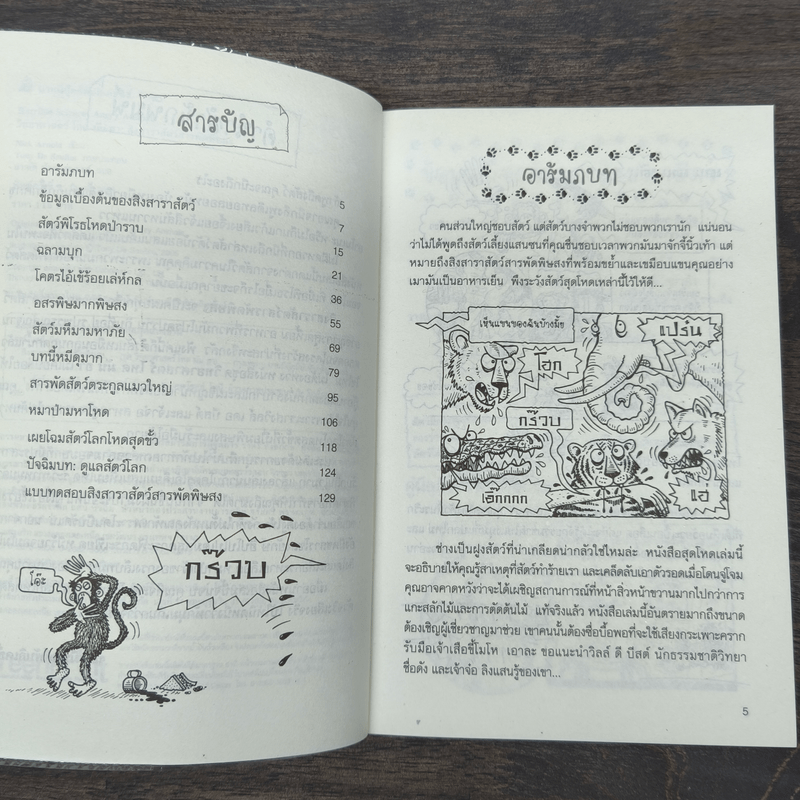 สารบัญ
อารัมภบท
ข้อมูลเบื้องต้นของสิงสาราสัตว์ 5
สัตว์พิโรธโหดป่าราบ 7
ฉลามบุก 15
โคตรไอ้เข้ร้อยเล่ห์กล 21
อสรพิษมากพิษสง 36
สัตว์มหึมามหาภัย 55
บทนี้หมีดุมาก 69
สารพัดสัตว์ตระกูลแมวใหญ่ 79
หมาป่ามหาโหด 95
เผยโฉมสัตว์โลกโหดสุดขั้ว 106
ปัจฉิมบท: ดูแลสัตว์โลก 118
แบบทดสอบสิงสาราสัตว์สารพัดพิษสง 124
129
กร๊วบ
โอ๊ะ
อารัมภบท
คนส่วนใหญ่ชอบสัตว์ แต่สัตว์บางจำพวกไม่ชอบพวกเรานัก แน่นอน
ว่าไม่ได้พูดถึงสัตว์เลี้ยงแสนซนที่คุณชื่นชอบเวลาพวกมันมาจั๊กจี้นิ้วเท้า แต่
หมายถึงสิงสาราสัตว์สารพัดพิษสงที่พร้อมขย้ำและเขมือบแขนคุณอย่าง
เมามันเป็นอาหารเย็น พึงระวังสัตว์สุดโหดเหล่านี้ไว้ให้ดี...
เห็นแขนของฉันบ้างมั้ย
โฮก
แปร๋น
กร๊วบ
เอิกกกก
แฮ่
ช่างเป็นฝูงสัตว์ที่น่าเกลียดน่ากลัวใช่ไหมล่ะ หนังสือสุดโหดเล่มนี้
จะอธิบายให้คุณรู้สาเหตุที่สัตว์ทำร้ายเรา และเคล็ดลับเอาตัวรอดเมื่อโดนจู่โจม
คุณอาจคาดหวังว่าจะได้เผชิญสถานการณ์ที่หน้าสิ่วหน้าขวานมากไปกว่าการ
แกะสลักไม้และการตัดต้นไม้ แท้จริงแล้ว หนังสือเล่มนี้อันตรายมากถึงขนาด
ต้องเชิญผู้เชี่ยวชาญมาช่วย เขาคนนั้นต้องซื่อบื้อพอที่จะใช้เสียงกระเพาะคราก
รับมือเจ้าเสือขี้โมโห เอาละ ขอแนะนำวิลล์ ดี บีสต์ นักธรรมชาติวิทยา
ชื่อดัง และเจ้าจ๋อ ลิงแสนรู้ของเขา...
5